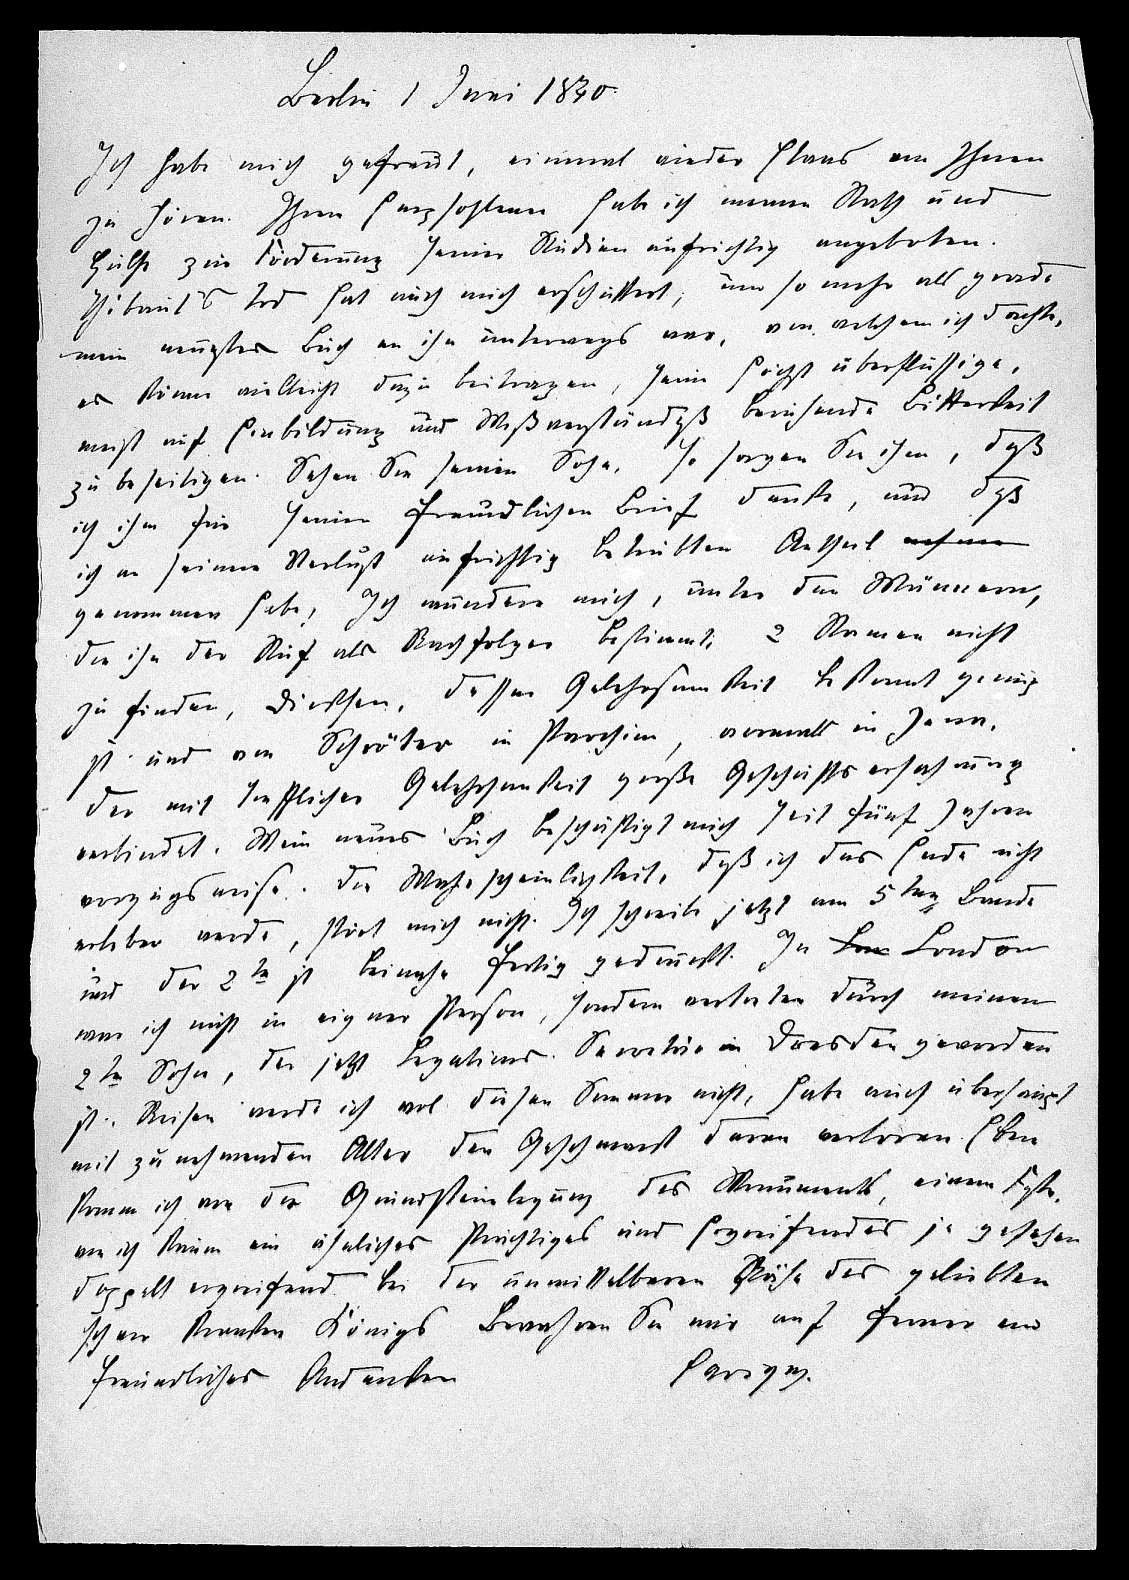 Berlin 1 Juni 1840.
Ich habe mich gefreut, einmal wieder Etwas von Ihnen
zu hören. Ihrem Empfohlenen habe ich meinen Rath und
Hülfe zur Förderung seiner Studien aufrichtig angeboten.
Thibaut's Tod hat auch mich erschüttert, um so mehr als gerade
mein neustes Buch an ihn unterwegs war, von welchem ich dachte,
es könne vielleicht dazu beitragen, seine höchst überflüssige,
meist auf Einbildung und Mißverständniß beruhende Bitterkeit
zu beseitigen. Sehen Sie seinen Sohn, so sagen Sie ihm, daß
ich ihm für seinen freundlichen Brief danke, und daß
ich an seinem Verlust aufrichtig betrübten Antheil nehme
genommen habe. Ich wundere mich, unter den Männern,
die ihn der Ruf als Nachfolger bestimmt, 2 Namen nicht
zu finden, Dirksen, dessen Gelehrsamkeit bekannt genug
ist und von Schröter in Parchim, vormals in Jena,
der mit trefflicher Gelehrsamkeit große Geschäftserfahrung
verbindet. Mein neues Buch beschäftigt mich seit fünf Jahren
vorzugsweise. Die Wahrscheinlichkeit, daß ich das Ende nicht
erleben werde, stört mich nicht. Ich schreibe jetzt am 5ten Bande
und der 2te ist beinahe fertig gedruckt. In Lon London
war ich nicht in eigner Person, sondern vertreten durch meinen
2ten Sohn, der jetzt Legations-Secretär in Dresden geworden
ist. Reisen werde ich wol diesen Sommer nicht, habe auch überhaupt
mit zunehmendem Alter den Geschmack daran verloren. Eben
komme ich von der Grundsteinlegung des Monuments, einem Feste,
wie ich kaum ein ähnliches Prächtiges und Ergreifendes je gesehen
doppelt ergreifend bei der unmittelbaren Nähe des geliebten
schwer kranken Königs. Bewahren Sie mir auch ferner ein
freundliches Andenken Savigny.